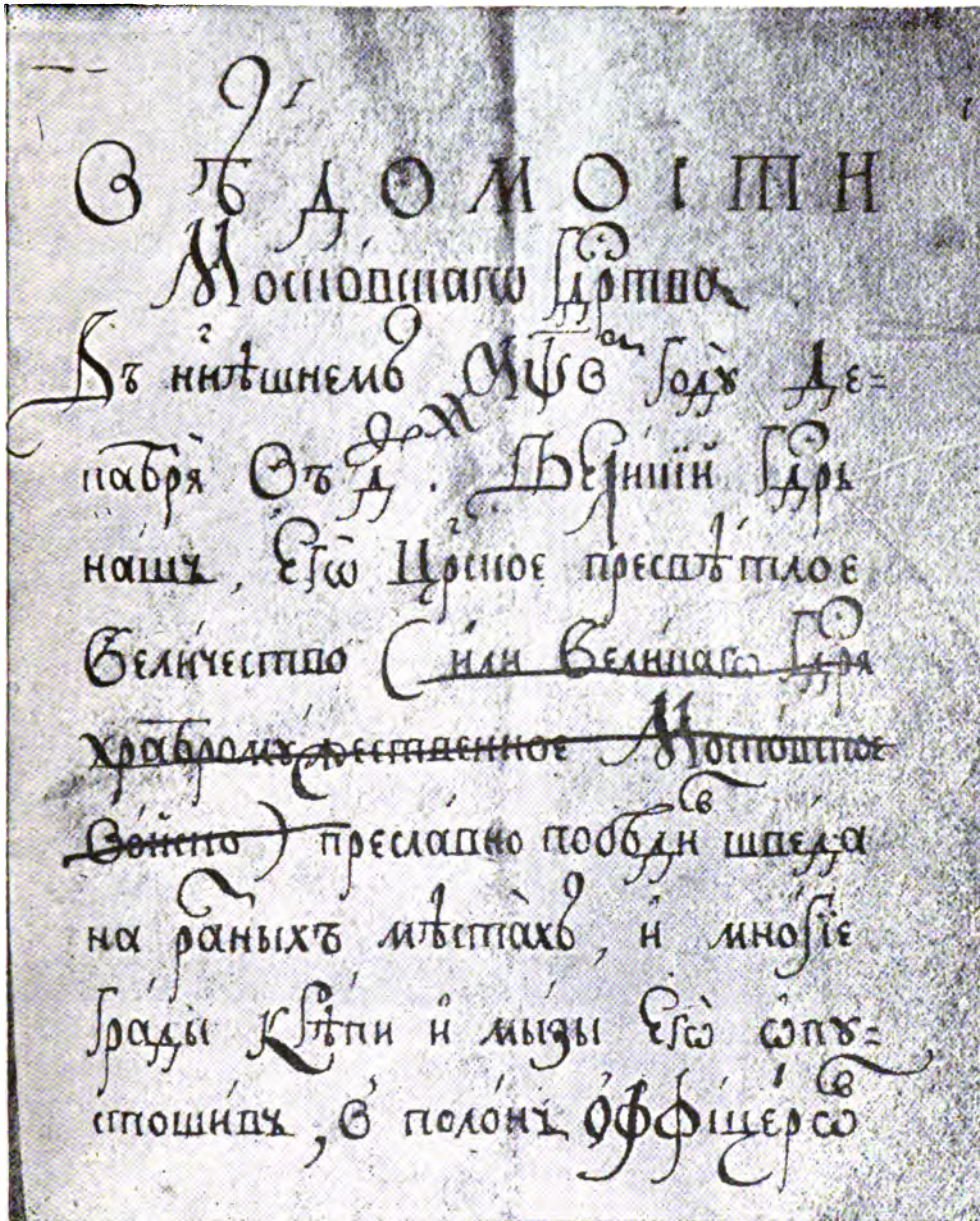 ВѢДОМОСТИ
Московскагѡ Гдⷭ҇ртва
Въ нн҃ѣшнемъ ҂АѰВ годꙋ̀ Де=
кабрѧ̀ Въ Д҃ де҃. Вели́кїй Гдⷭ҇рь
нашъ, Егѡ̀ Цр҃ское пресвѣ́тлое
Вели́чество (и́ли Вели́кагѡ Гдⷭ҇рѧ
храбромꙋжественное Московское
Во́йско) пресла́вно побѣди́въ шве́да
на ра́зныхъ мѣ́стахъ, и҆ мно́гїе
гра́ды крѣ́пки и҆ мы́зы Егѡ̀ ѡ҆пꙋ=
стоши́въ, В поло́нъ Оффїце́рѡвъ